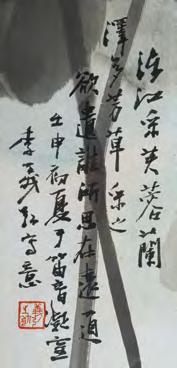 涉江采芙蓉蘭
澤多芳草采之
欲遺誰所思在遠道
壬申初夏于笛音凝室
李義弘寫意